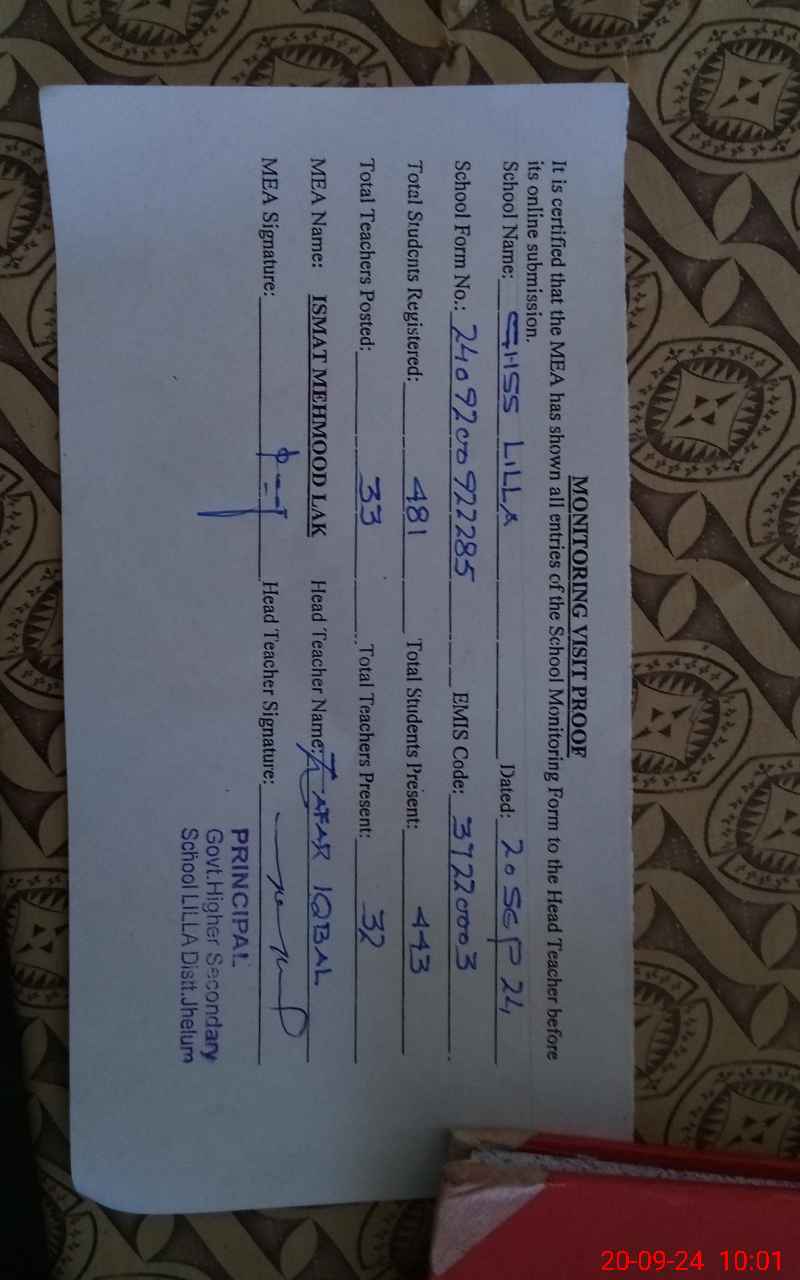 MONITORING VISIT PROOF
It is certified that the MEA has shown all entries of the School Monitoring Form to the Head Teacher before
its online submission.
School Name: GHSS LILLA Dated: 20 SEP 24
School Form No.: 2409200922285 EMIS Code: 37220003
Total Students Registered: 481 Total Students Present: 443
Total Teachers Posted: 33 Total Teachers Present: 32
MEA Name: ISMAT MEHMOOD LAK Head Teacher Name: ZAFAR IQBAL
MEA Signature: Head Teacher Signature:
PRINCIPAL
Govt.Higher Secondary
School LILLA Distt.Jhelum
20-09-24 10:01